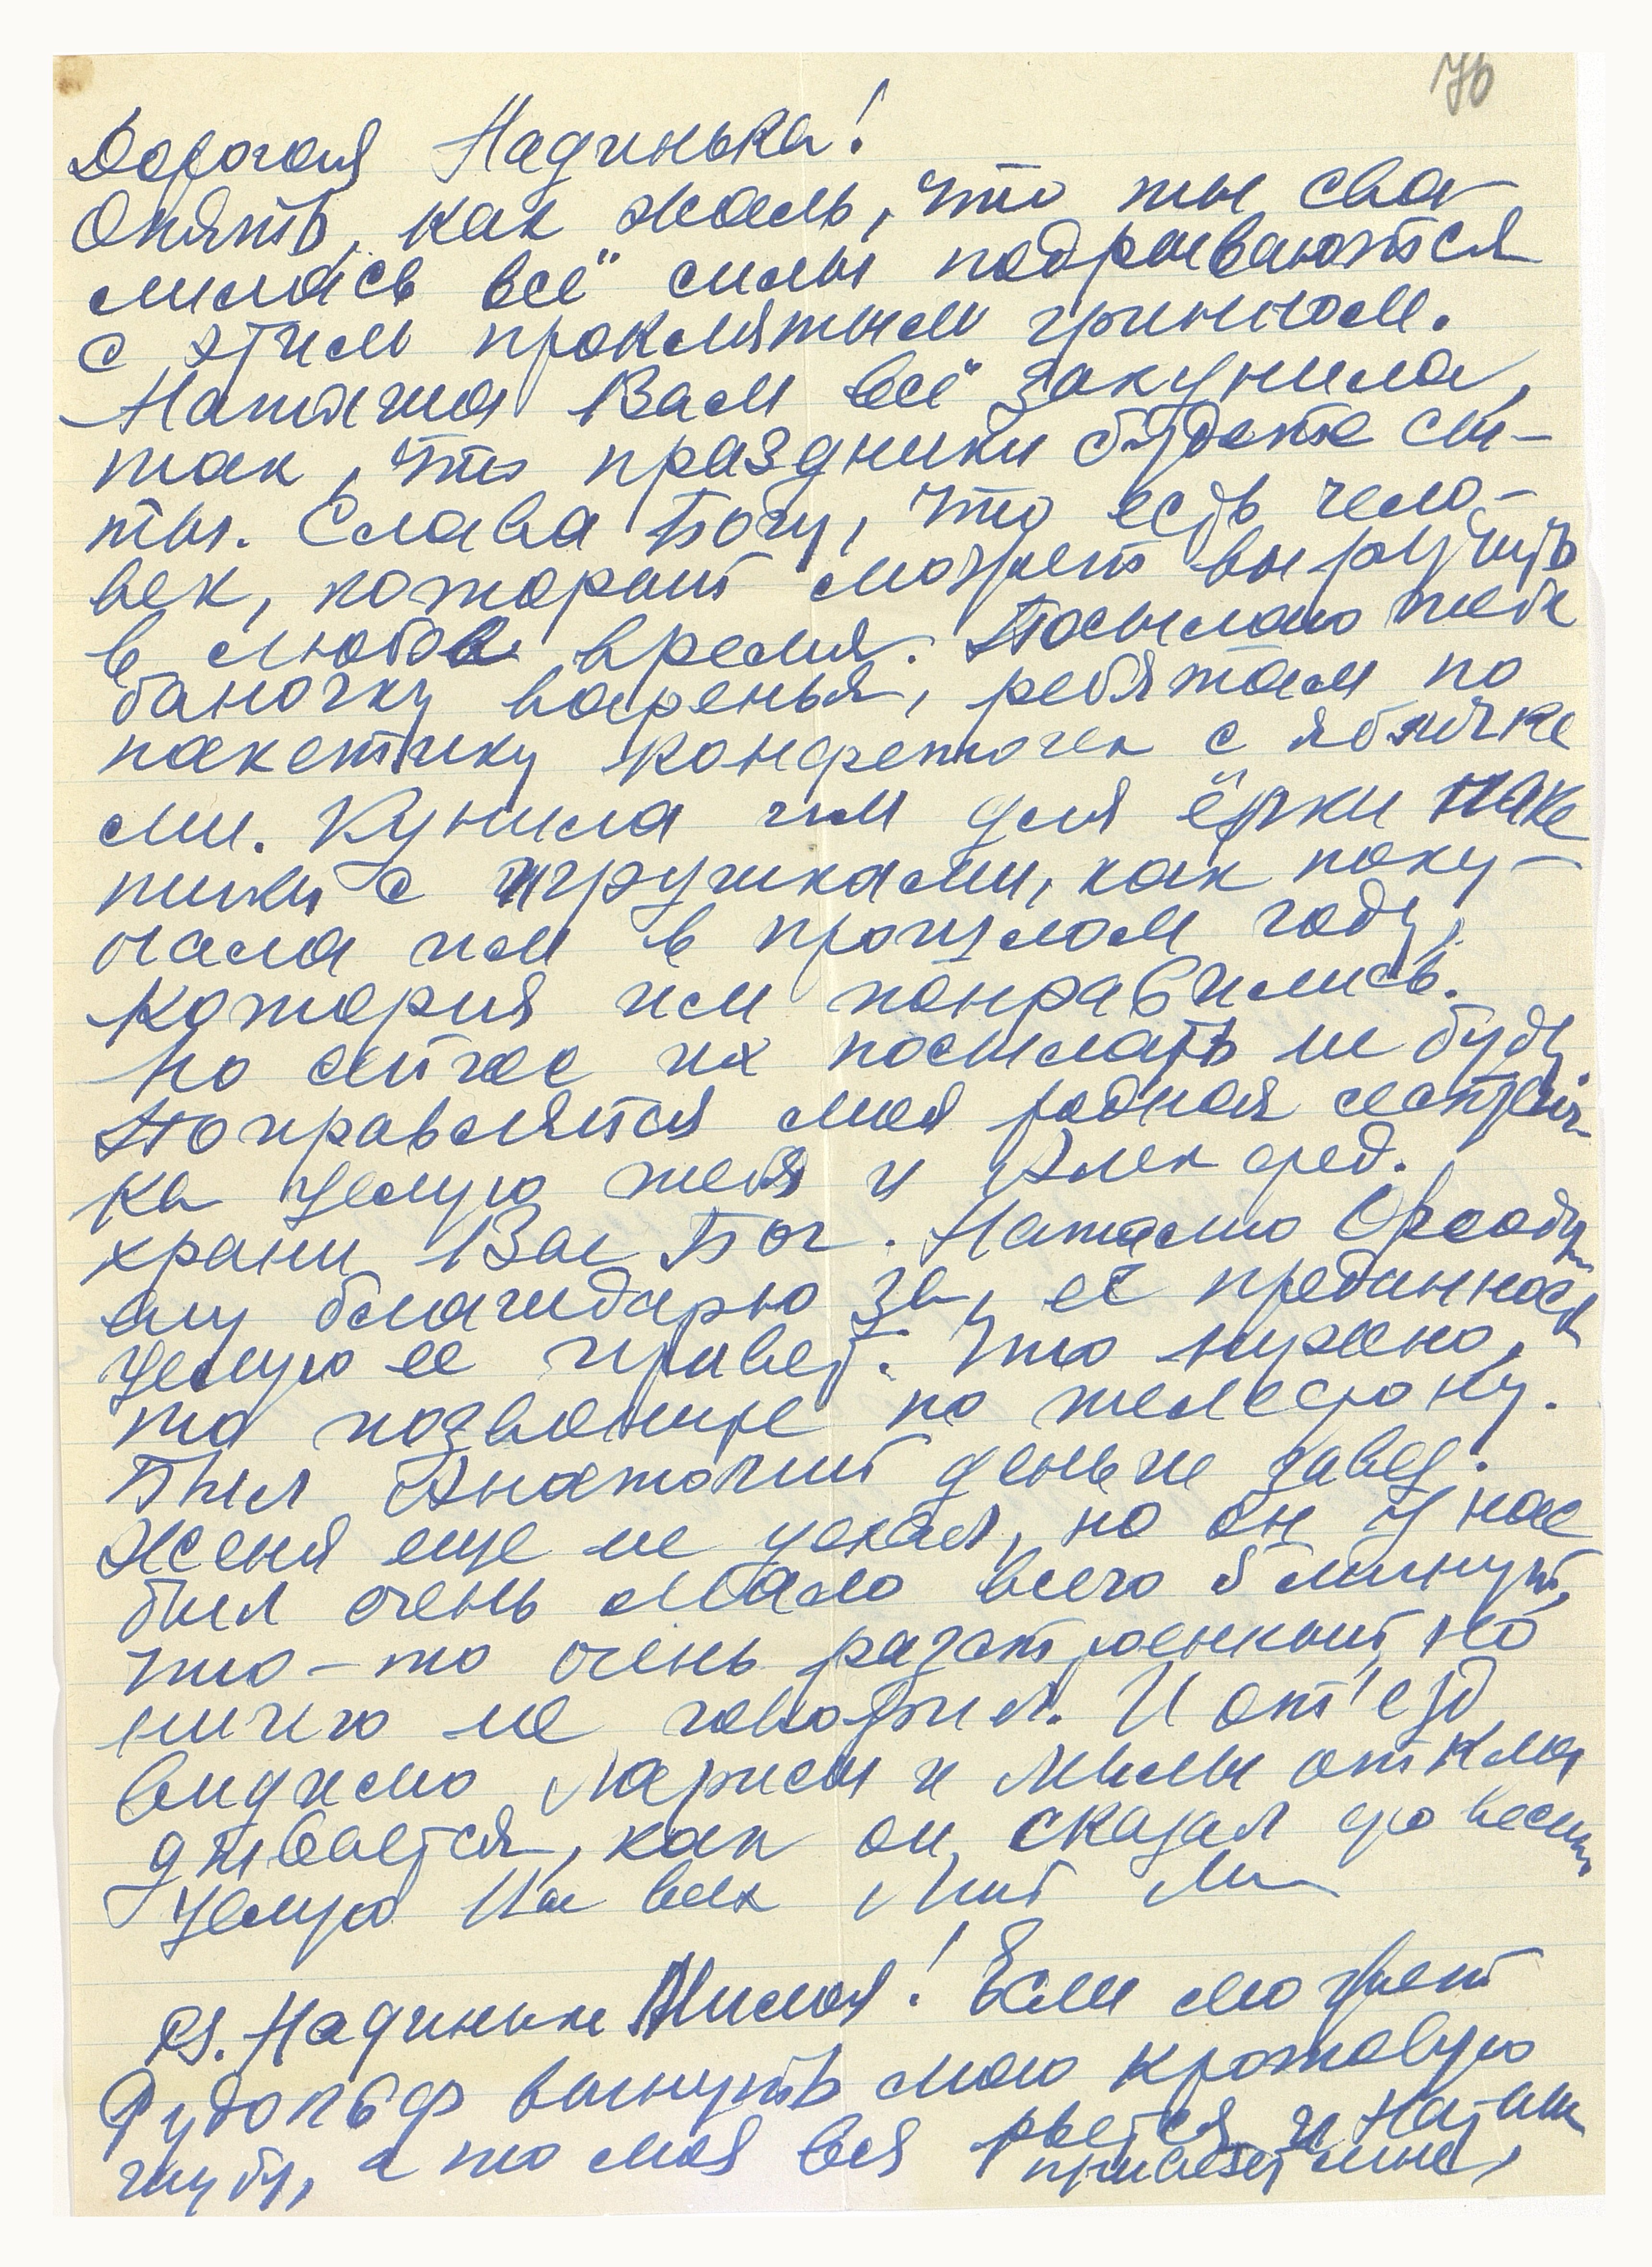 76
Дорогая Надинька!
Опять, как жаль, что ты сва
лилась всё силы подрываются
с этим проклятым гриппом.
Наташа Вам всё закупила,
так, что праздники будете сы-
ты. Слава Богу, что есть чело-
век, который может выручить
в любое время. Посылаю тебе
баночку варенья, ребятам по
пакетику конфеточек с яблочке
ми. Купила им для ёлки паке
тики с игрушками, как поку-
пала им в прошлом году,
которыя им понравились.
Но сейчас их посылать не буду
Поправляйся моя родная сестрич-
ка целую тебя и Алек фед.
храни Вас Бог. Наташю
ему благодарю за, её преданность
Целую ее привет. Что нужно,
то позвоните по телефону.
Был Анатолий деньги завез.
Женя еще не уехал, но он у нас
был очень мало всего 5 минут,
что-то очень разстроенный, но
ничего не говорил. И от'езд
видимо Ларисы и Милы откла
дывается, как он сказал до весны
Целую Вас всех
PS. Надинька Милая! Если может
Рудольф вынуть мою кротовую
шубу, а то моя вся рвется и Наташ
привезет мне,